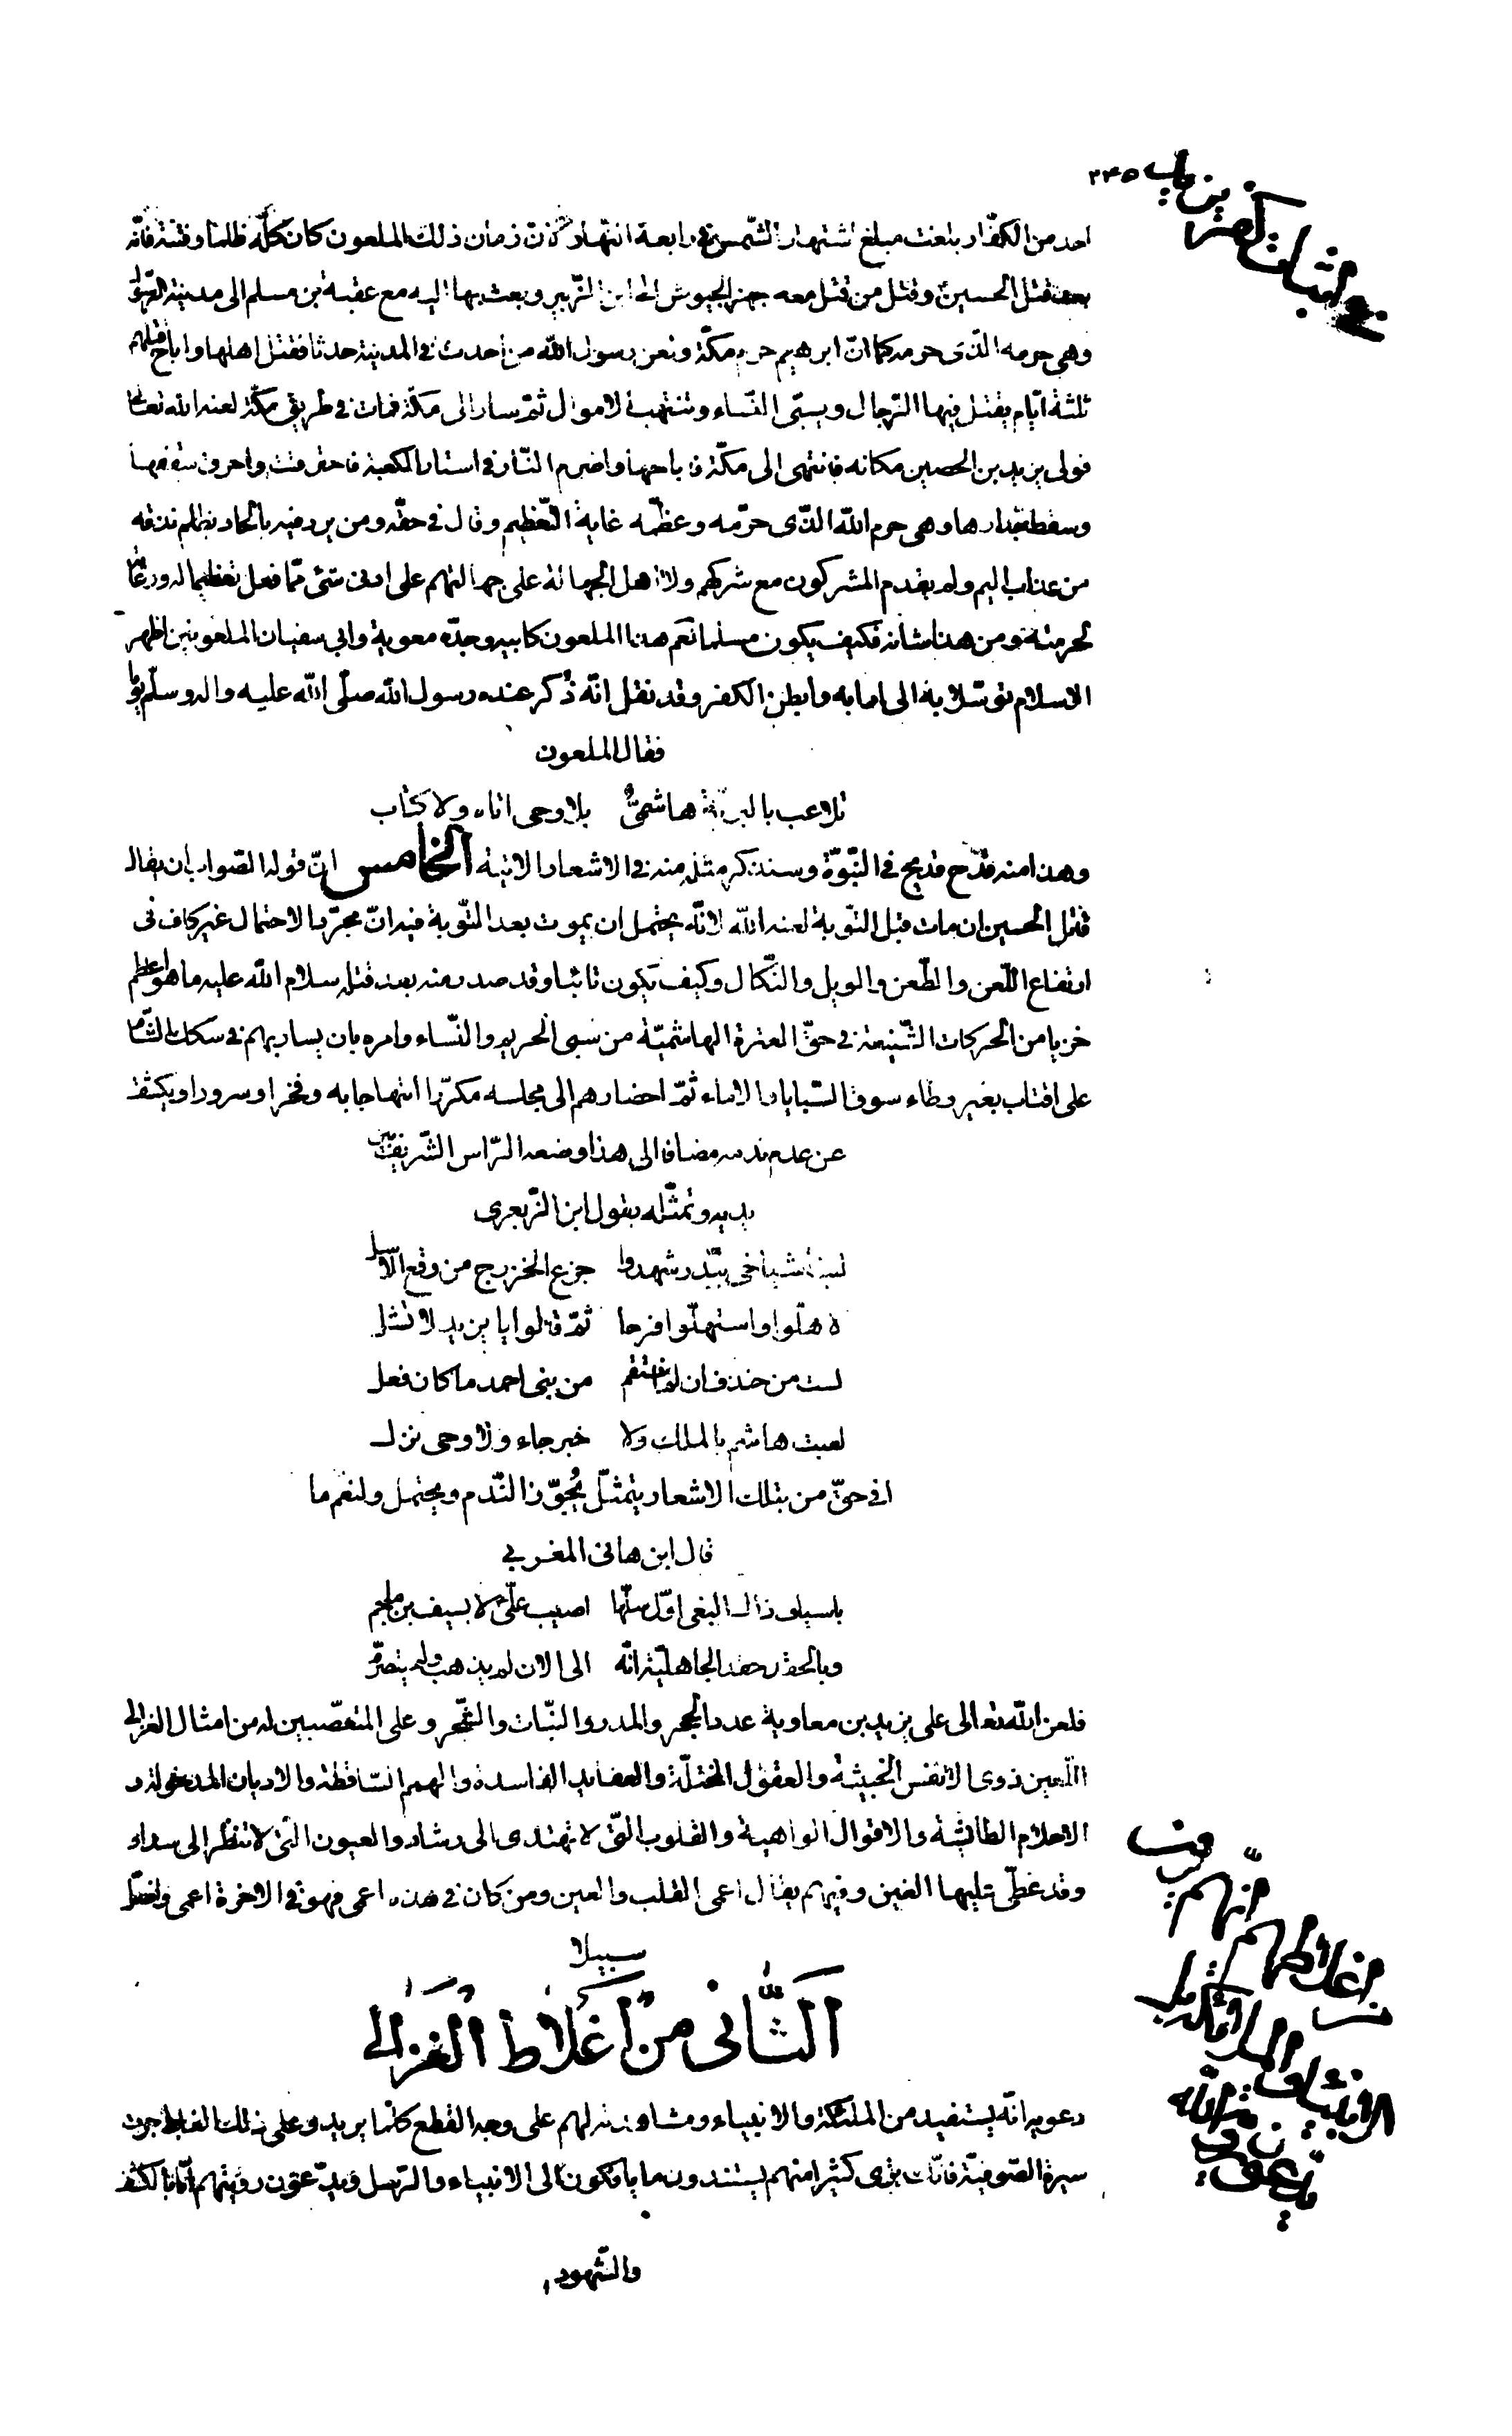 ٢٤٥
في اثبات كفر يزيد
احد من الكفّار بلغت مبلغ اشتهار الشّمس في رابعة النّهار كانت زمان ذلك الملعون كان كلّه ظلما وفتنة فانّه
بعد قتل الحسين وقتل من قتل معه جهز الجيوش الى ابن الزّبير وبعث بها اليه مع عقبة بن مسلم الى مدينة الرّسول
وهي حرمه الذّى حرمه كما انّ ابرهيم حرم مكّة ولعن رسول الله من احدث في المدينة حدثا فقتل اهلها واباح قتلهم
ثلثة ايّام يقتل فيها الرّجال ويسبّى النّساء وتنتهب الاموال ثمّ سار الى مكّة فمات في طريق مكّة لعنه الله تعالى
فولى يزيد بن الحصين مكانه فانتهى الى مكّة فاباحها واضرم النّار في استار الكعبة فاحترقت واحرق سقفها
وسقط جدارها وهي حرم الله الذّى حرّمه وعظّمه غاية التّعظيم وقال في حقّه ومن يرد فيه بالحاد بظلم نذقه
من عذاب اليم ولم يقدم المشركون مع شركهم ولا اهل الجهالة على جهالتهم على ادنى شئ ممّا فعل تعظيما له ورعاية
لحرمته ومن هذا شأنه فكيف يكون مسلما نعم هذا الملعون كابيه وجدّه معوية وابي سفيان الملعونين اظهر
الاسلام توسّلا به الى امابه وابطن الكفر وقد نقل انّه ذُكر عنده رسول الله صلّى الله عليه واله وسلّم يوما
فقال الملعون
تلاعب بالبريّة هاشمىٌّ بلا وحى اتاه ولا كتاب
وهذا منه قدح قديح في النّبوّة وسنذكر مثله منه في الاشعار الاتية الخامس انّ قوله الصّواب ان يقال
قتل الحسين ان مات قبل التّوبة لعنه الله لانّه يحتمل ان يموت بعد التّوبة فيه انّ مجرّد الاحتمال غير كاف فى
ارتفاع اللّعن والطّعن والويل والنّكال وكيف يكون تائبا وقد صدر منه بعد قتله سلام الله عليه ما هو اعظم
خزيا من الحركات الشّنيعة في حقّ العترة الهاشميّة من سبى الحريم والنّساء وامره بان يسار بهم في سكك الشّام
على اقتاب بغير وطاء سوق السّبايا والاماء ثمّ احضارهم الى مجلسه مكرّرا ابتهاجا به وفخرا وسرورا ويكشف
عن عدم ندمه مضافا الى هذا وضعه الرّاس الشّريف بين
يديه وتمثّله بقول ابن الزّبعرى
ليت اشياخى ببدر شهدوا جزع الخزرج من وقع الاسل
لاهلّوا واستهلّوا فرحا ثمّ قالوا يا يزيد لا تشل
لست من خندف ان لم انتقم من بنى احمد ما كان فعل
لعبت هاشم بالملك ولا خبر جاء ولا وحى نزل
افي حقّ من بتلك الاشعار يتمثّل يُجوّز النّدم ويحتمل ولنعم ما
قال ابن هانى المغربي
باسياف ذاك البغى اوّل سلّها اصيب علىّ لا بسيف بن ملجم
وبالحقد حقد الجاهليّة انّه الى الان لم يذهب ولم يتصرّم
فلعن الله تعالى على يزيد بن معاوية عدد الحجر والمدر والنّبات والشّجر وعلى المتعصّبين له من امثال الغزالى
اللّعين ذوى الانفس الخبيثة والعقول المختلّة والعقايد الفاسدة والهمم السّاقطة والاديان المدخولة و
الاحلام الطائشة والاقوال الواهية والقلوب التّى لا تهتدى الى رشاد والعيون التّى لا تنظر الى سداد
وقد غطّى عليها الغين وفيهم يقال اعمى القلب والعين ومن كان في هذه اعمى فهو في الاخرة اعمى واضلّ
سبيلا
الثّانى من اغلاط الغزالى
دعويه انّه يستفيد من الملئكة والانبياء ومشاهدته لهم على وجه القطع كلّما يريد وعلى ذلك الغلط جرت
سيرة الصّوفيّة فانّك ترى كثيرا منهم يستندون ما ياتكون الى الانبياء والرّسل ويدّعون رؤيتهم امّا بالكشف
ومن
اغلاطهم انّهم
يدّعون
والشّهود